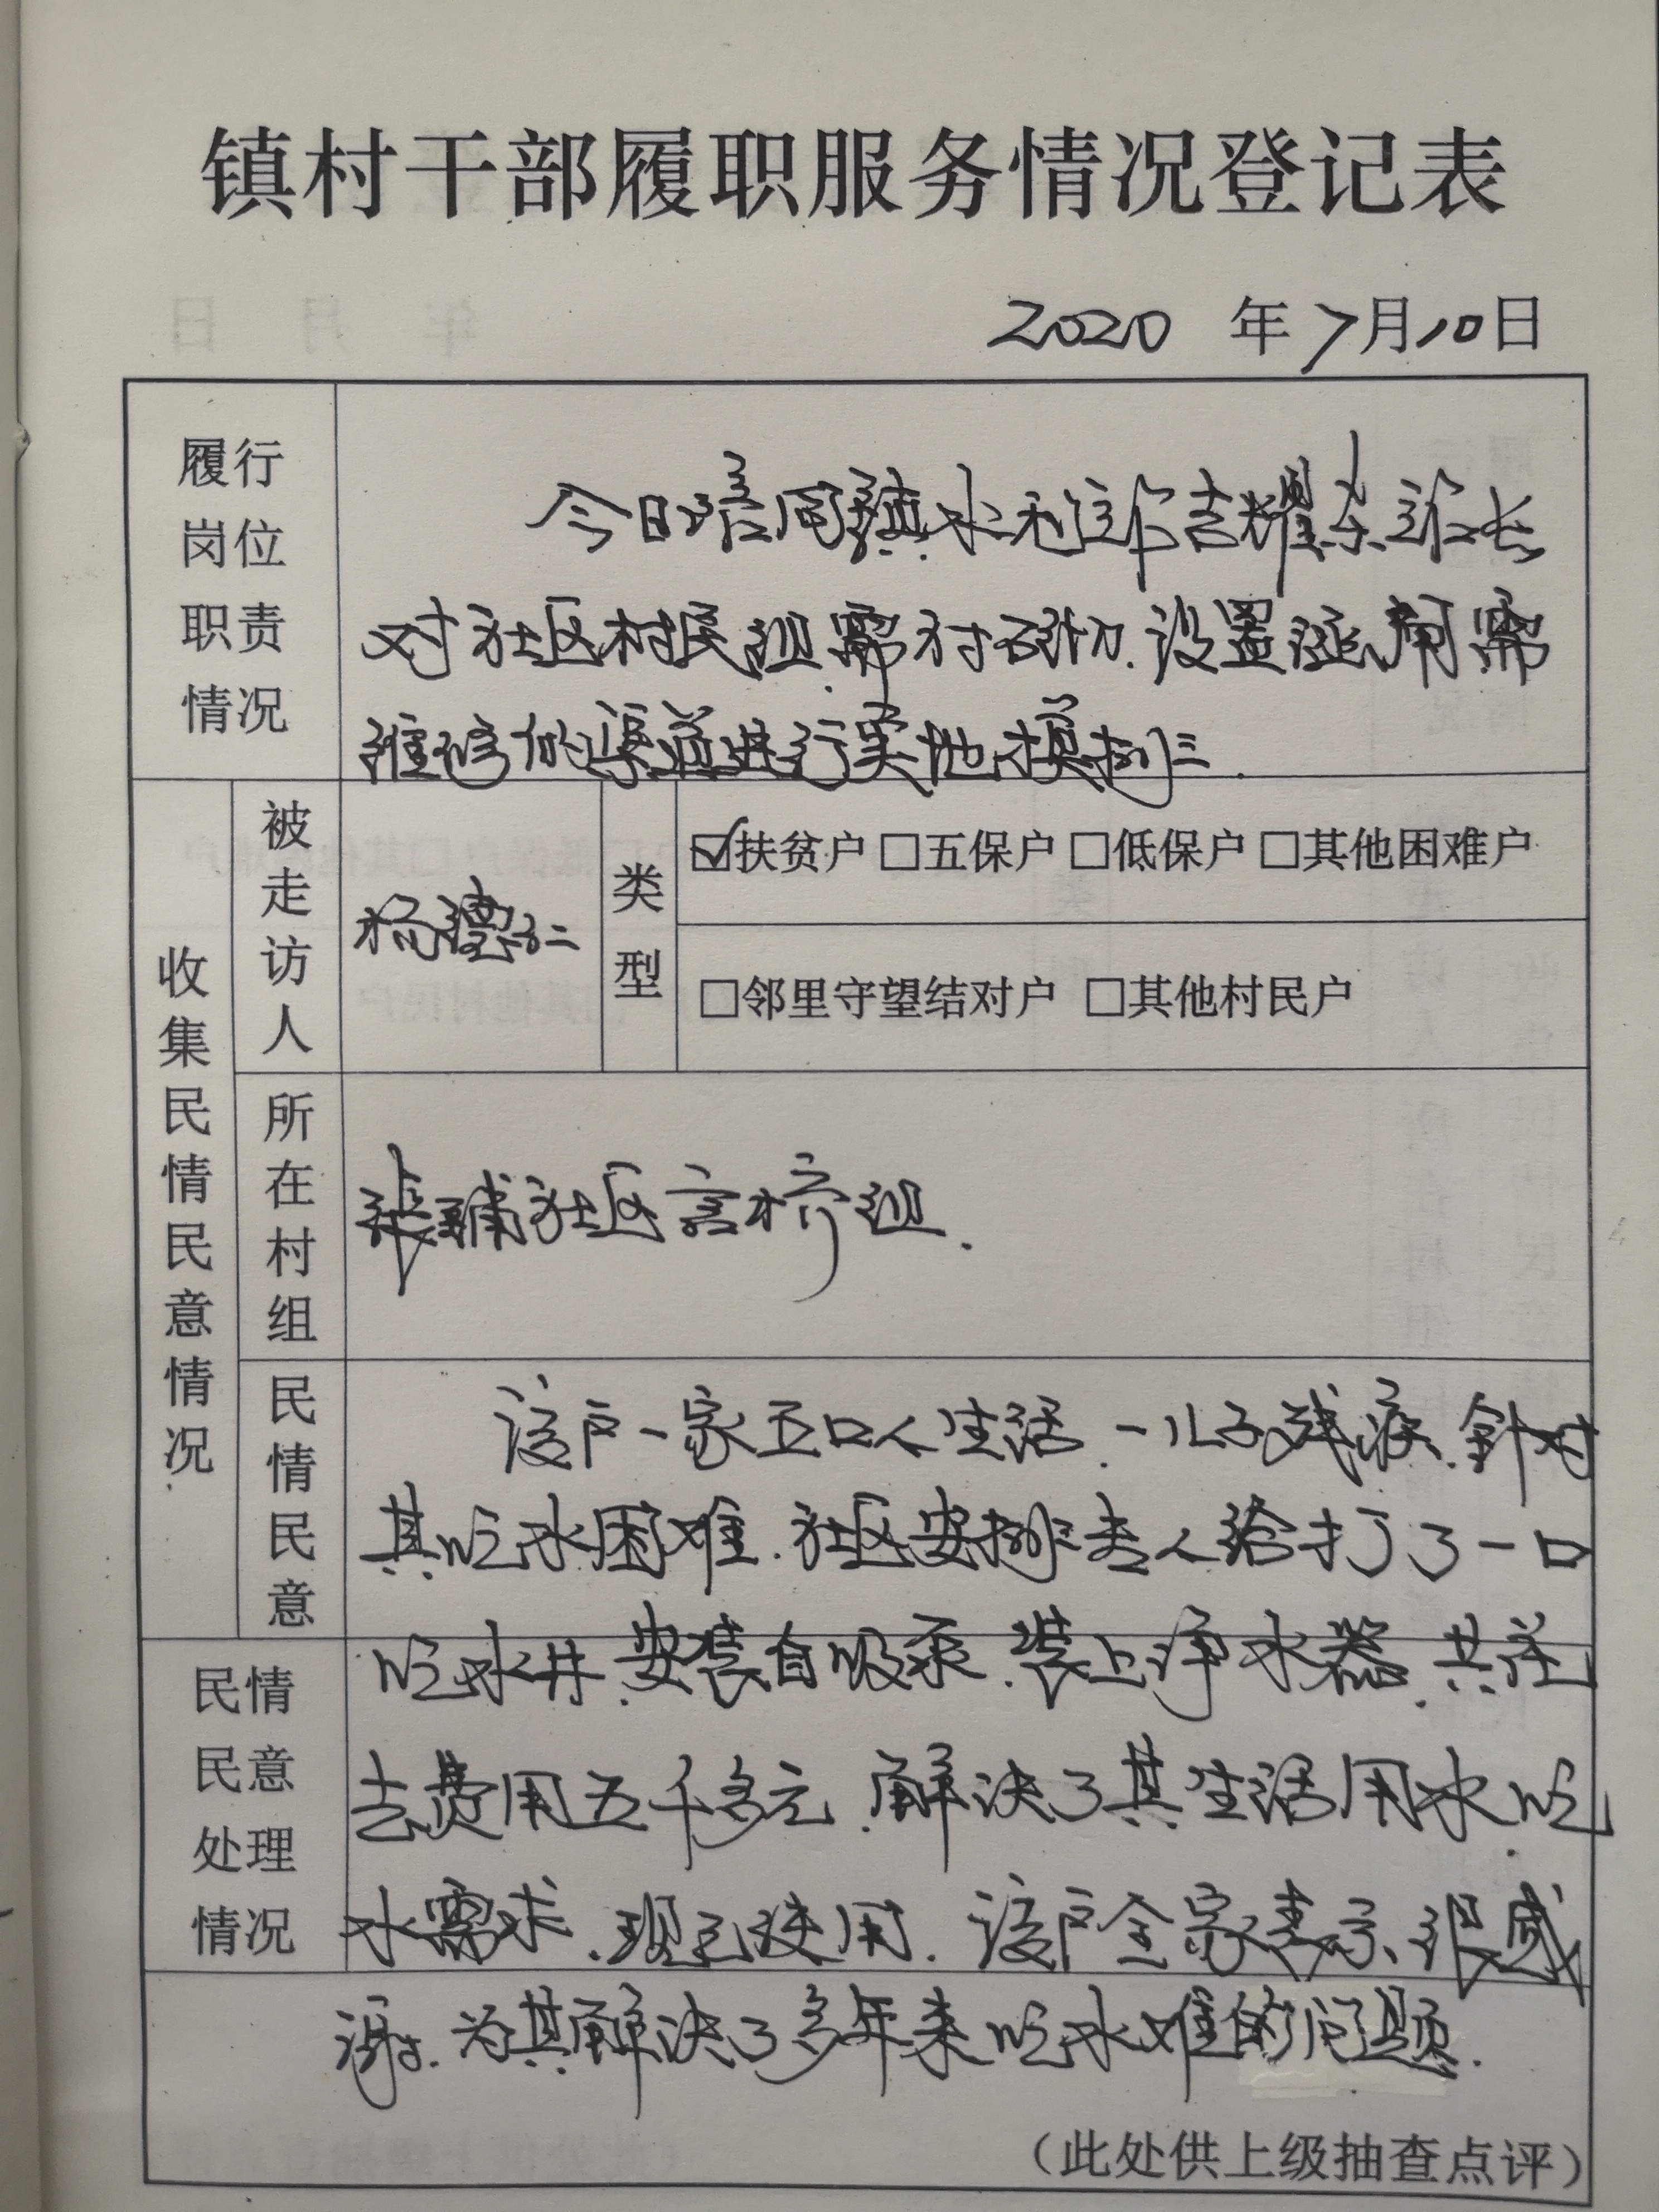 镇村干部履职服务情况登记表
2020 年 7月10日
履行
岗位
职责
情况
今日陪同镇水利 吉耀 长
对社区村民组需衬砌.设置 需
维修的渠道进行实地摸排.
收集民情民意情况
被走访人
杨德仁
类型
☑扶贫户 □五保户 □低保户 □其他困难户
□邻里守望结对户 □其他村民户
所在村组
张 社区 桥组.
民情民意
该户一家五口人生活.一儿子残疾.针对
其吃水困难.社区安排专人给打了一口
民情
民意
处理
情况
吃水井.安装自吸泵.装上净水器.共
去费用五千多元.解决了其生活用水吃
水需求.现已使用.该户全家表示很感
谢.为其解决了多年来吃水难的问题.
（此处供上级抽查点评）